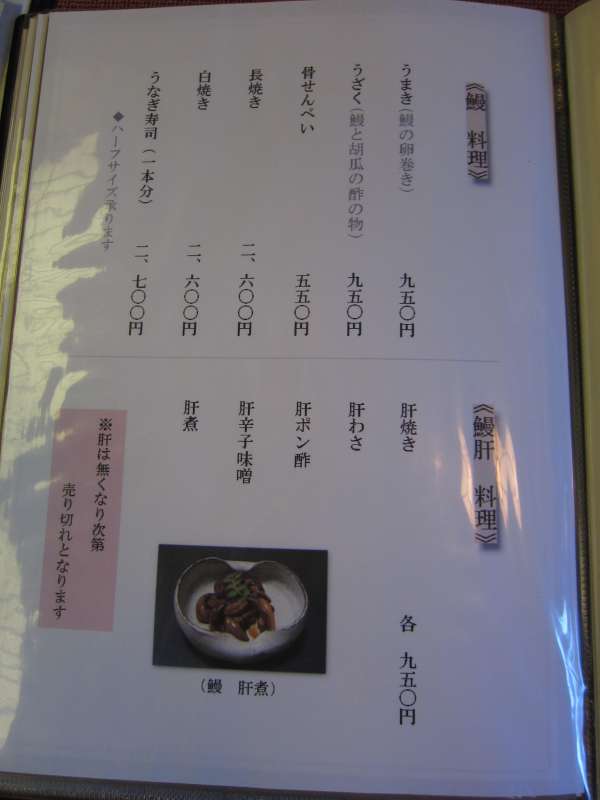 《鰻 料理》
うまき(鰻の卵巻き) 九五〇円
うざく(鰻と胡瓜の酢の物) 九五〇円
骨せんべい 五五〇円
長焼き 二、六〇〇円
白焼き 二、六〇〇円
うなぎ寿司(一本分) 二、七〇〇円
◆ハーフサイズ承ります
《鰻肝 料理》
肝焼き 各 九五〇円
肝わさ
肝ポン酢
肝辛子味噌
肝煮
(鰻 肝煮)
※肝は無くなり次第
売り切れとなります